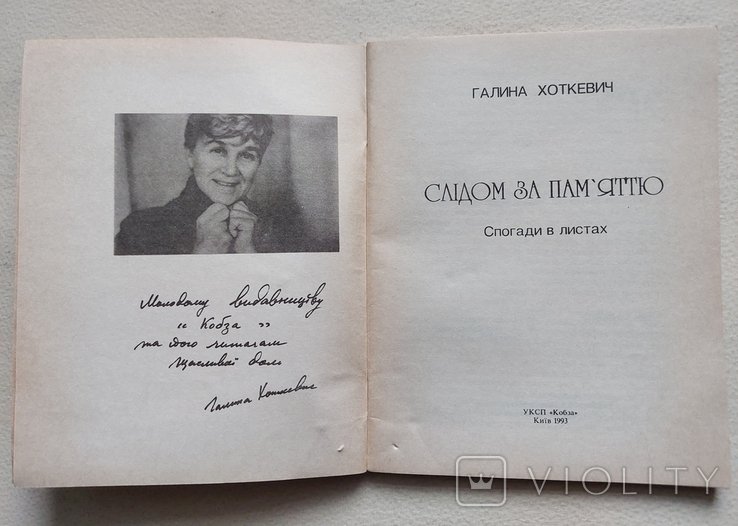 Молодому видавництву
„ Кобза "
та його читачам
щасливої долі
Галина Хоткевич
ГАЛИНА ХОТКЕВИЧ
СЛІДОМ ЗА ПАМ`ЯТТЮ
Спогади в листах
УКСП «Кобза»
Київ 1993
VIOLITY